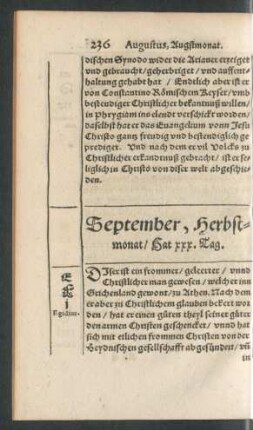 236 Augustus, Augstmonat.
dischen Synodo wider die Arianer erzeiget
vnd gebraucht / geherbriget / vnd auffent-
haltung gehabt hat / Endtlich aber ist er
von Constantino Römischem Keyser / vmb
bestendiger Christlicher bekantnuß willen /
in Phrygiam ins elendt verschickt worden /
daselbst hat er das Euangelium vonn Jesu
Christo gantz freudig vnd bestendiglich ge
prediget. Vnd nach dem er vil Volcks in
Christlicher erkandtnuß gebracht / ist er se-
liglich in Christo von diser welt abgeschie-
den.
September, Herbst-
monat / Hat xxx. Tag.
Egidius.
DIser ist ein frommer / geleerter / vnnd
Christlicher man gewesen / welcher inn
Grichenland gewont / zu Athen. Nach dem
er aber zu Christlichem glauben bekert wor
den / hat er einen gůten theyl seiner gůter
den armen Christen geschencket / vnnd hat
sich mit etlichen frommen Christen von der
Heydnischen gesellschafft abgesündert / vñ
in